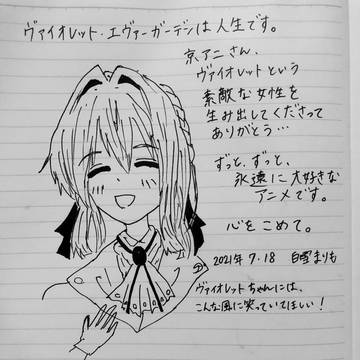 ヴァイオレット・エヴァーガーデンは人生です。
京アニさん、
ヴァイオレットという
素敵な女性を
生み出してくださって
ありがとう…
ずっと、ずっと、
永遠に大好きな
アニメです。
心をこめて。
2021年 7・18 白雪まりも
ヴァイオレットちゃんには、
こんな風に笑っていてほしい!